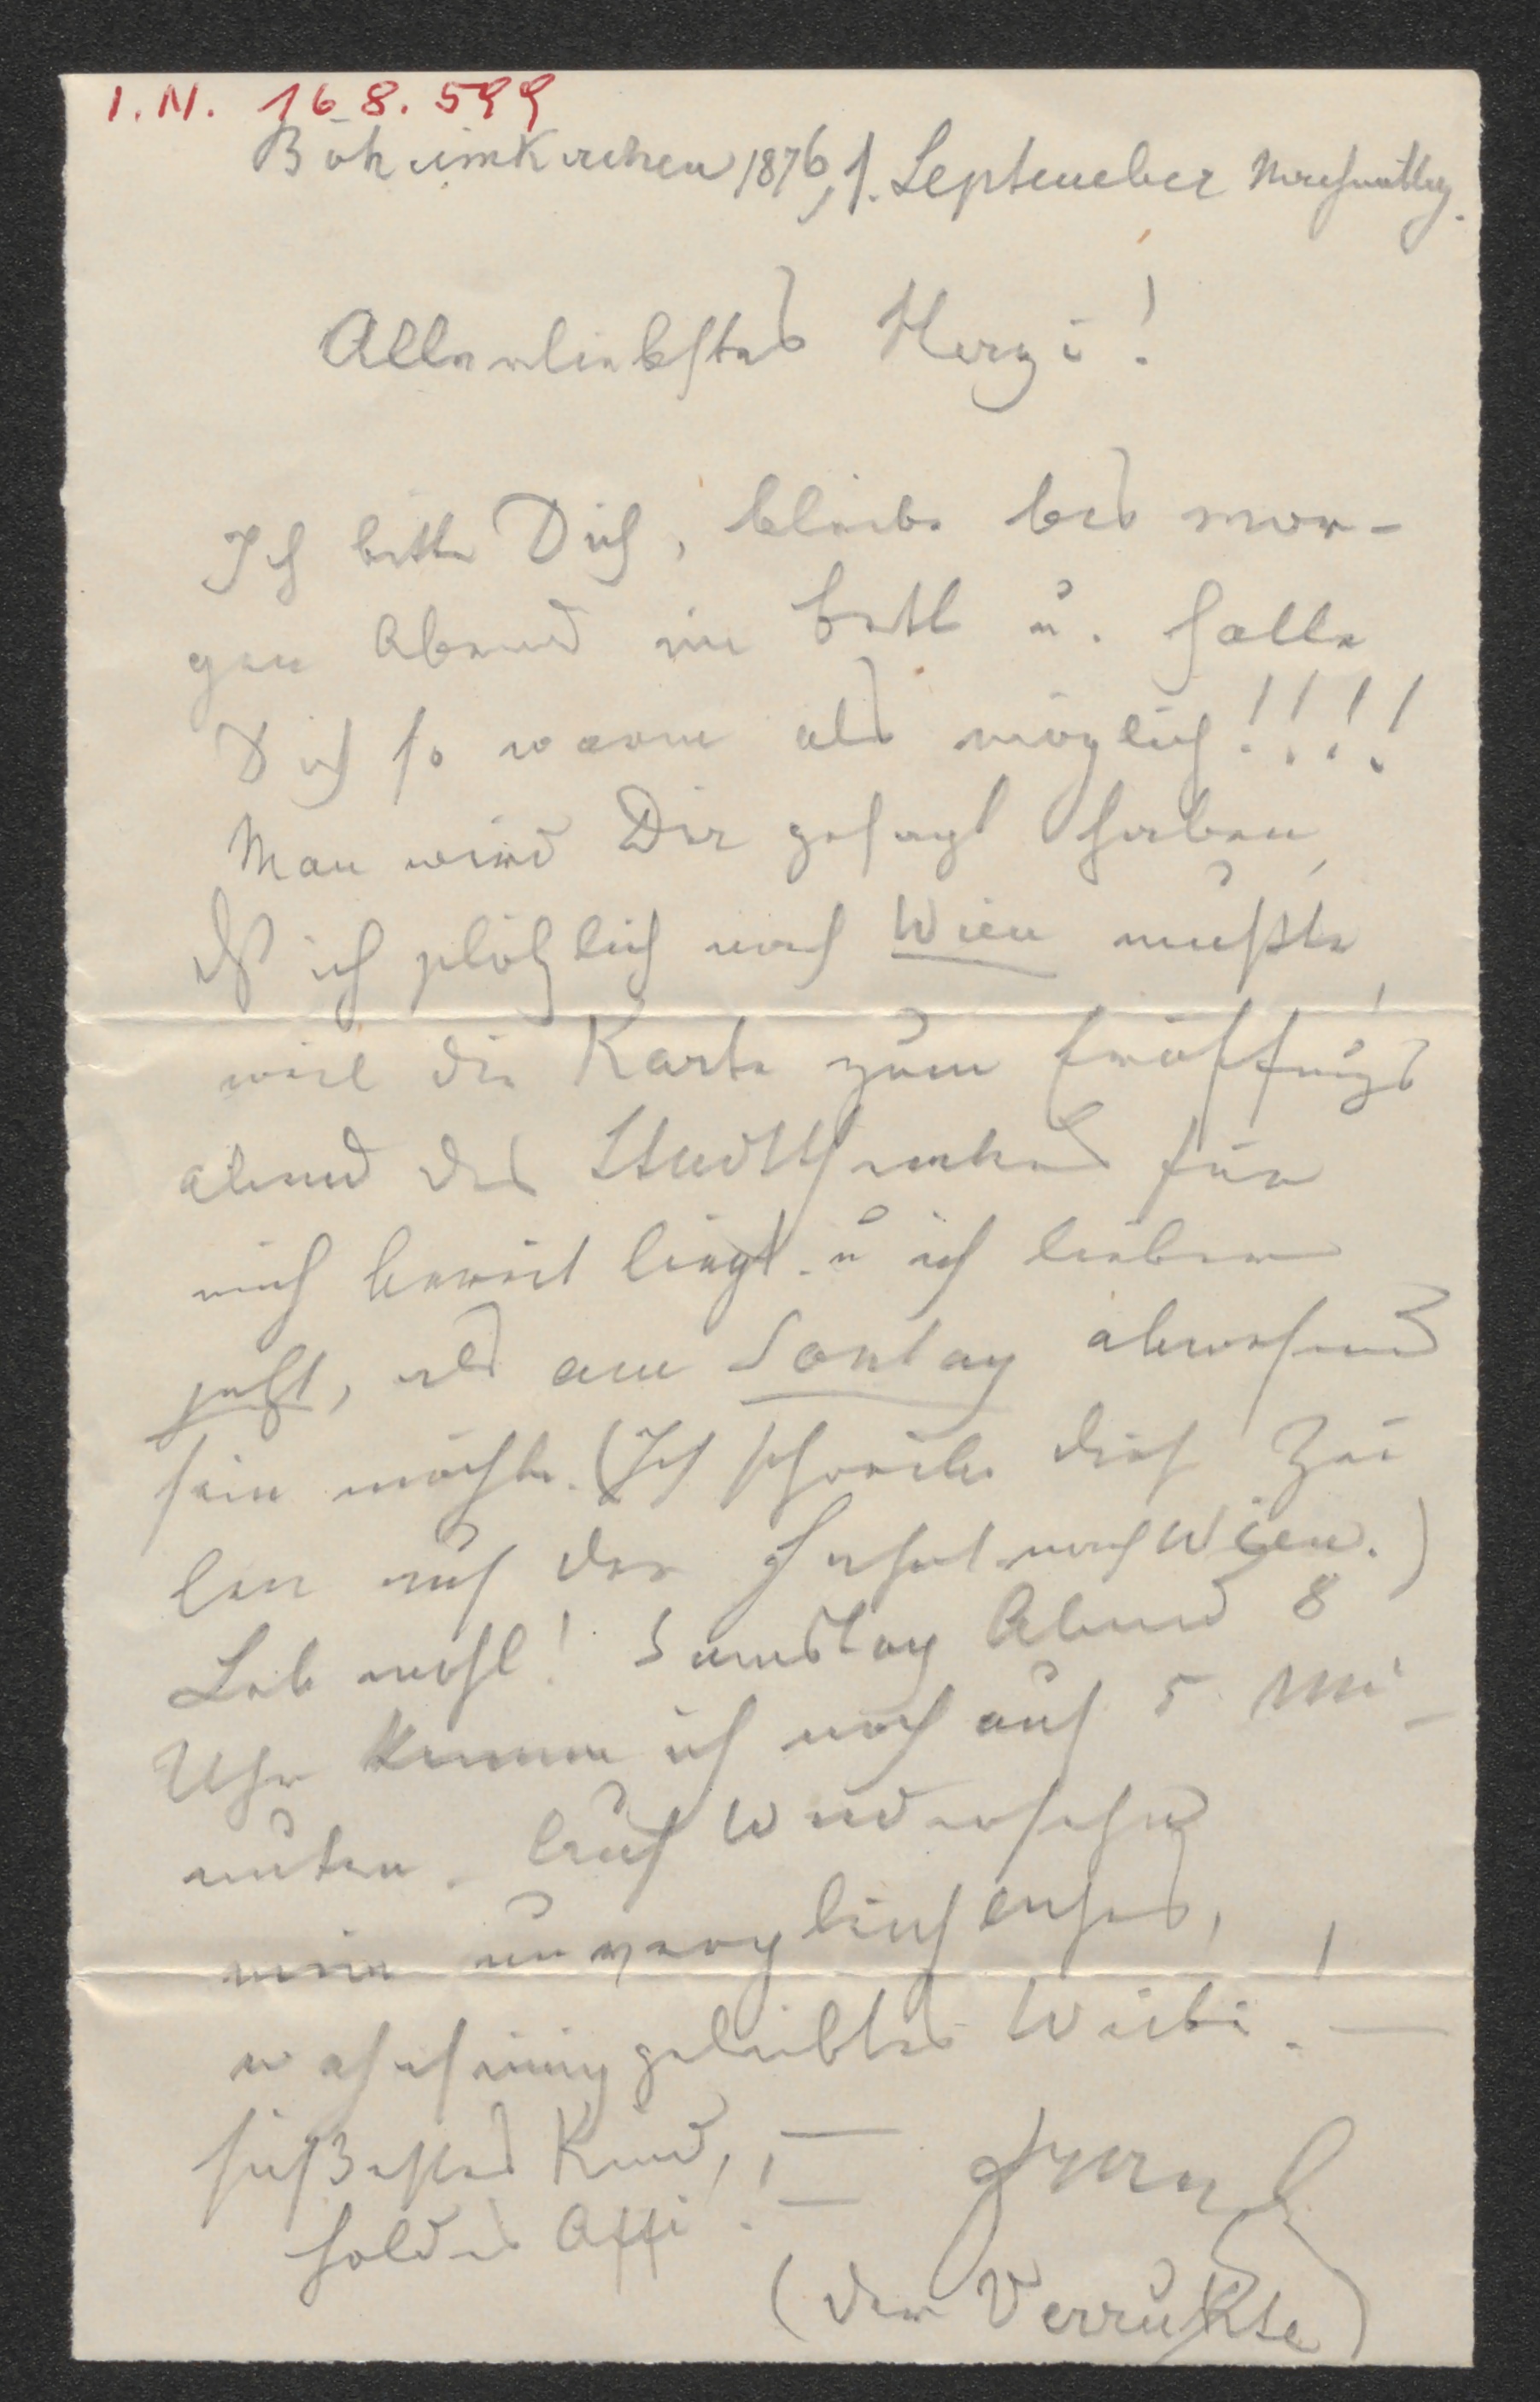 I.N. 168.599
Böheimkirchen 1876, 1. September Nachmittag.
Allerliebstes Herzi!
Ich bitte Dich, bleibe bis mor-
gen Abend im Bett u. halte
Dich so warm als möglich!!!!
Man wird Dir gesagt haben,
daß ich plötzlich nach Wien mußte,
weil die Karte zum Eröffnungs
abend des Stadttheaters für
mich bereit liegt. u ich lieber
jetzt, als am Sontag abwesend
sein möchte. (Ich schreibe diese Zei
len auf der Fahrt nach Wien.)
Leb wohl! Samstag Abend 8
Uhr komme ich noch auf 5 Mi-
nuten. Auf Wiedersehn
mein unvergleichliches,
wahnsinnig geliebtes Weibi! —
süßestes Kind, —
holdes Affi! —
(der Verrükte)